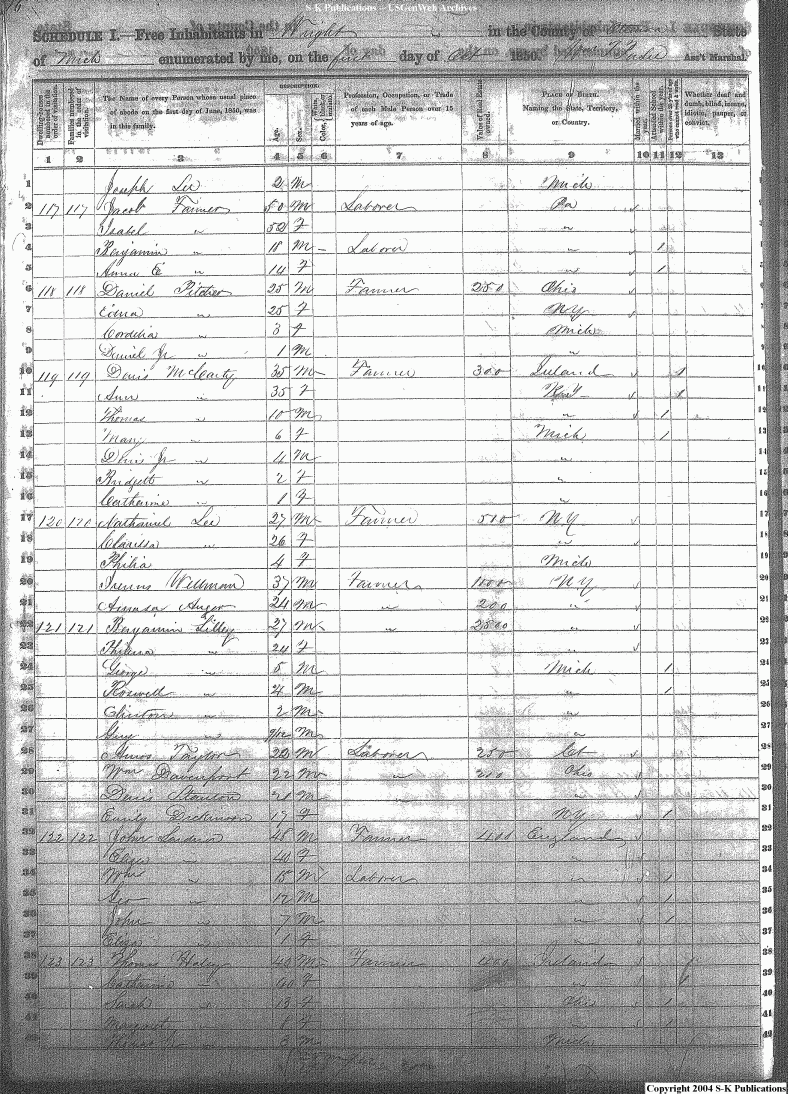 S-K Publications -- USGenWeb Archives
SCHEDULE I.—Free Inhabitants in Wright in the County of State
of Mich enumerated by me, on the first day of Oct 1850. Ass't Marshal.
Dwelling-houses numbered in the order of visitation.
Families numbered in the order of visitation.
The Name of every Person whose usual place of abode on the first day of June, 1850, was in this family.
DESCRIPTION.
Age.
Sex.
Color, White, black, or mulatto.
Profession, Occupation, or Trade of each Male Person over 15 years of age.
Value of Real Estate owned.
PLACE OF BIRTH. Naming the State, Territory, or Country.
Married within the year.
Attended School within the year.
Whether deaf and dumb, blind, insane, idiotic, pauper, or convict.
1 2 3 4 5 6 7 8 9 10 11 12 13
1 Joseph Lee 2 M Mich 1
2 117 117 Jacob Farmer 50 M Laborer Pa 2
3 Isabel " 52 F " 3
4 Benjamin " 18 M Laborer " 1 4
5 Anna E " 14 F " 1 5
6 118 118 Daniel Pitcher 25 M Farmer 250 Ohio 6
7 Edna " 25 F NY 7
8 Cordelia " 3 F Mich 8
9 Daniel Jr " 1 M " 9
10 119 119 Denis McCarty 35 M Farmer 300 Ireland 1 10
11 Ann " 35 F 1 11
12 Thomas " 10 M " 1 12
13 Mary " 6 F Mich 1 13
14 Denis Jr " 4 M " 14
15 Bridgett " 2 F " 15
16 Catherine " 1 F " 16
17 120 120 Nathaniel Lee 27 M Farmer 500 NY 17
18 Clarissa " 26 F " 18
19 Philia 4 F Mich 19
20 Wellman 37 M Farmer 1000 NY 20
21 Amasa Auger 24 M " 200 " 21
22 121 121 Benjamin Lilley 27 M " 2500 " 22
23 Philena " 24 F " 23
24 George " 5 M Mich 1 24
25 Roswell " 4 M " 1 25
26 Clinton " 2 M " 26
27 Guy " 9/12 M " 27
28 Amos Taylor 22 M Laborer 250 Ct 28
29 Wm Davenport 22 M " 200 Ohio 29
30 Denis Stanton 21 M " " 30
31 Emily Dickinson 17 F NY 1 31
32 122 122 John 48 M Farmer 400 England 32
33 Eliza " 40 F " 33
34 Wm " 15 M Laborer " 1 34
35 Geo " 12 M " 1 35
36 John " 7 M " 1 36
37 Eliza " 1 F " 37
38 123 123 Thomas Haley 40 M Farmer 1000 Ireland 38
39 Catherine " 40 F " 39
40 Sarah " 13 F Ohio 1 40
41 Margaret " F " 1 41
42 Thomas Jr " 3 M Mich 42
Copyright 2004 S-K Publications